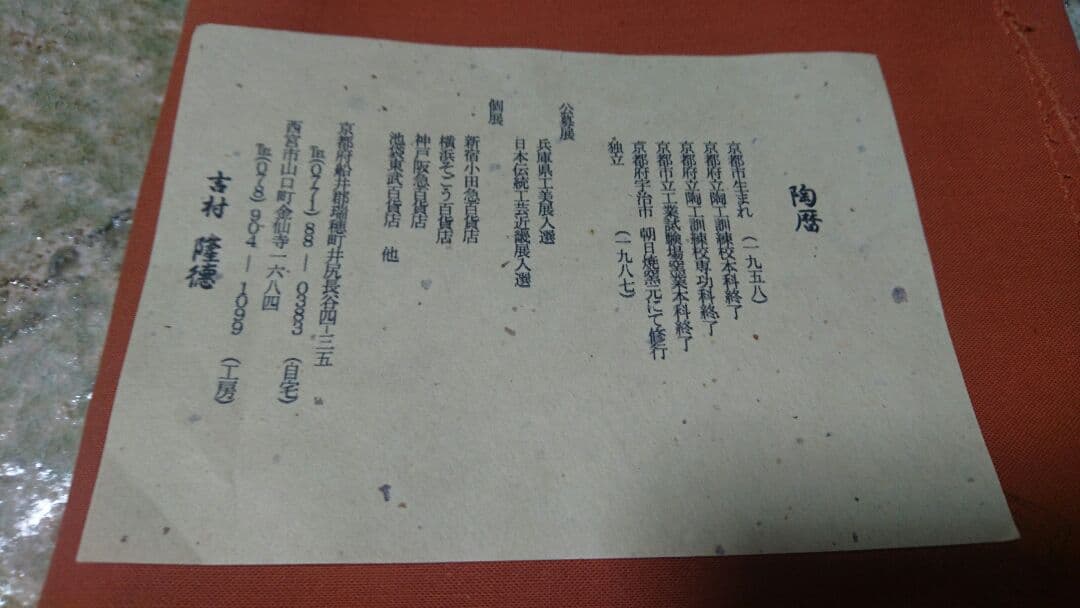 陶暦
京都市生まれ （一九五八）
京都府立陶工訓練校本科終了
京都府立陶工訓練校専功科終了
京都市立工業試験場窯業本科終了
京都府宇治市 朝日焼窯元にて修行
独立 （一九八七）
公募展
兵庫県工美展入選
日本伝統工芸近畿展入選
個展
新宿小田急百貨店
横浜そごう百貨店
神戸阪急百貨店
池袋東武百貨店 他
京都府船井郡瑞穂町井尻長谷四−三五
℡(0771) 88−0383 （自宅）
西宮市山口町金仙寺一六八四
℡(078) 904−1099 （工房）
吉村 隆徳